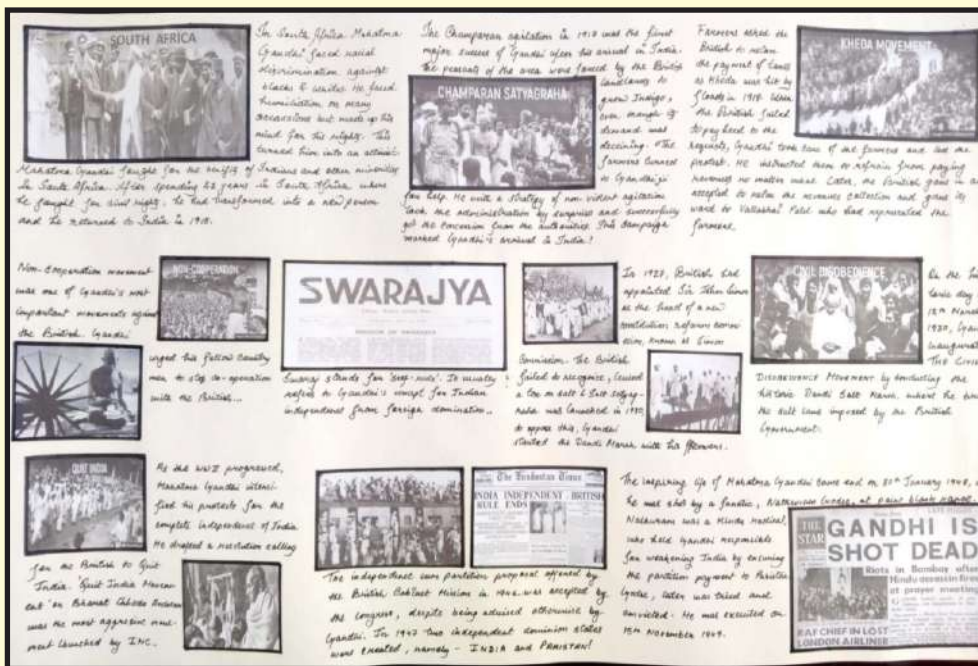 SOUTH AFRICA
In South Africa Mahatma
Gandhi faced racial
discrimination against
blacks & whites. He faced
humiliation on many
occasions but made up his
mind for his rights. This
turned him into an activist.
Mahatma Gandhi fought for the benefits of Indians and other minorities
in South Africa. After spending years in South Africa where
he fought for civil rights, he had transformed into a new person
and he returned to India in
The Champaran agitation in was the first
major success of Gandhi after his arrival in India.
The peasants of the area were forced by the British
CHAMPARAN SATYAGRAHA
landlords to
grow Indigo,
even though its
demand was
declining. The
farmers turned
to Gandhiji
for help. He with a strategy of non violent agitation
took the administration by surprise and successfully
got the concession from the authorities. This campaign
marked Gandhi's arrival in India!
Farmers asked the
British to relax
the payment of taxes
as Kheda was hit by
floods in 1918. When
the British failed
to pay heed to the
KHEDA MOVEMENT
requests, Gandhi took case of the farmers and led the
protest. He instructed them to refrain from paying
revenues no matter what. Later, the British gave in and
accepted to relax the revenue collection and gave its
word to Vallabhai Patel who had represented the
farmers.
Non-Cooperation movement
was one of Gandhi's most
important movements against
the British. Gandhi
NON-COOPERATION
urged his fellow country
men to stop co-operation
with the British...
SWARAJYA
Swaraj stands for 'self-rule'. It usually
refers to Gandhi's concept for Indian
independence from foreign domination..
In British had
appointed Sir John Simon
as the head of a new
constitution reform
known as Simon
Commission. The British
failed to recognise,
a tax on salt & Salt Satyag-
raha was launched in 1930,
to oppose this, Gandhi
started the Dandi March with his followers.
CIVIL DISOBEDIENCE
On the
day
12th March
1930, Gandhi
inaugurated
The Civil
DISOBEDIENCE MOVEMENT by conducting the
historic Dandi Salt March, where he broke
the Salt Laws imposed by the British
Government.
QUIT INDIA
As the WWII progressed,
Mahatma Gandhi intensi-
fied his protests for the
complete independence of India.
He drafted a resolution calling
for the British to Quit
India. 'Quit India Movem-
ent' or Bharat Chhodo Andolan
was the most aggressive move-
ment launched by INC.
The Hindustan Times
INDIA INDEPENDENT : BRITISH
RULE ENDS
The independence cum partition proposal offered by
the British Cabinet Mission in was accepted by
the Congress, despite being advised otherwise by
Gandhi. In 1947 two independent dominion states
were created, namely - INDIA and PAKISTAN!
The inspiring life of Mahatma Gandhi came end on 30th January 1948,
he was shot by a fanatic, Nathuram Godse, at point blank
Nathuram was a Hindu radical,
who held Gandhi responsible
for weakening India by ensuring
the partition payment to Pakistan
Godse, later was tried and
convicted. He was executed on
15th November 1949.
THE
STAR
GANDHI IS
SHOT DEAD
Riots in Bombay after
Hindu assassin fires
at prayer meeting
RAF CHIEF IN LOST
LONDON AIRLINER